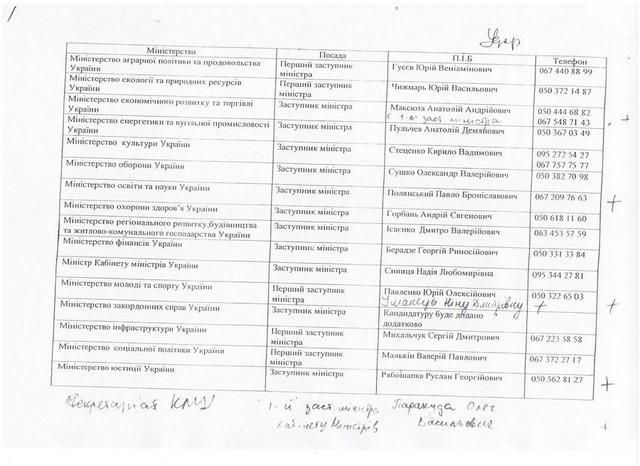 Удар
Міністерство Посада П.І.Б Телефон
Міністерство аграрної політики та продовольства України Перший заступник міністра Гусєв Юрій Веніамінович 067 440 88 99
Міністерство екології та природних ресурсів України Перший заступник міністра Чижмарь Юрій Васильович 050 372 14 87
Міністерство економічного розвитку та торгівлі України Заступник міністра Максюта Анатолій Андрійович 050 444 68 82
є 1-й заст міністра 067 548 71 43 +
Міністерство енергетики та вугільної промисловості України Заступник міністра Пульчев Анатолій Демянович 050 367 03 49
Міністерство культури України Заступник міністра Стеценко Кирило Вадимович 095 272 54 27
067 757 75 77
Міністерство оборони України Заступник міністра Сушко Олександр Валерійович 050 382 70 98
Міністерство освіти та науки України Заступник міністра Полянський Павло Броніславович 067 209 76 63 +
Міністерство охорони здоров'я України Заступник міністра Горбань Андрій Євгенович 050 618 11 60
Міністерство регіонального розвитку,будівництва та житлово-комунального господарства України Заступник міністра Ісаєнко Дмитро Валерійович 063 453 57 59
Міністерство фінансів України Заступник міністра Берадзе Георгій Риносійович 050 331 33 84 +
Міністр Кабінету міністрів України Заступник міністра Синица Надія Любомирівна 095 344 27 81
Міністерство молоді та спорту України Перший заступник міністра Павленко Юрій Олексійович 050 322 65 03
Уманець Ніну Дмитрівну +
Міністерство закордонних справ України Заступник міністра Кандидатуру буде подано додатково + +
Міністерство інфраструктури України Перший заступник міністра Михальчук Сергій Дмитрович 067 223 58 58
Міністерство соціальної політики України Перший заступник міністра Малькін Валерій Павлович 067 372 27 17
Міністерство юстиції України Заступник міністра Рябошапка Руслан Георгійович 050 562 81 27 +
Секретаріат КМУ 1-й заст. міністра Паракуда Олег
Каб-нету Міністрів Васильович